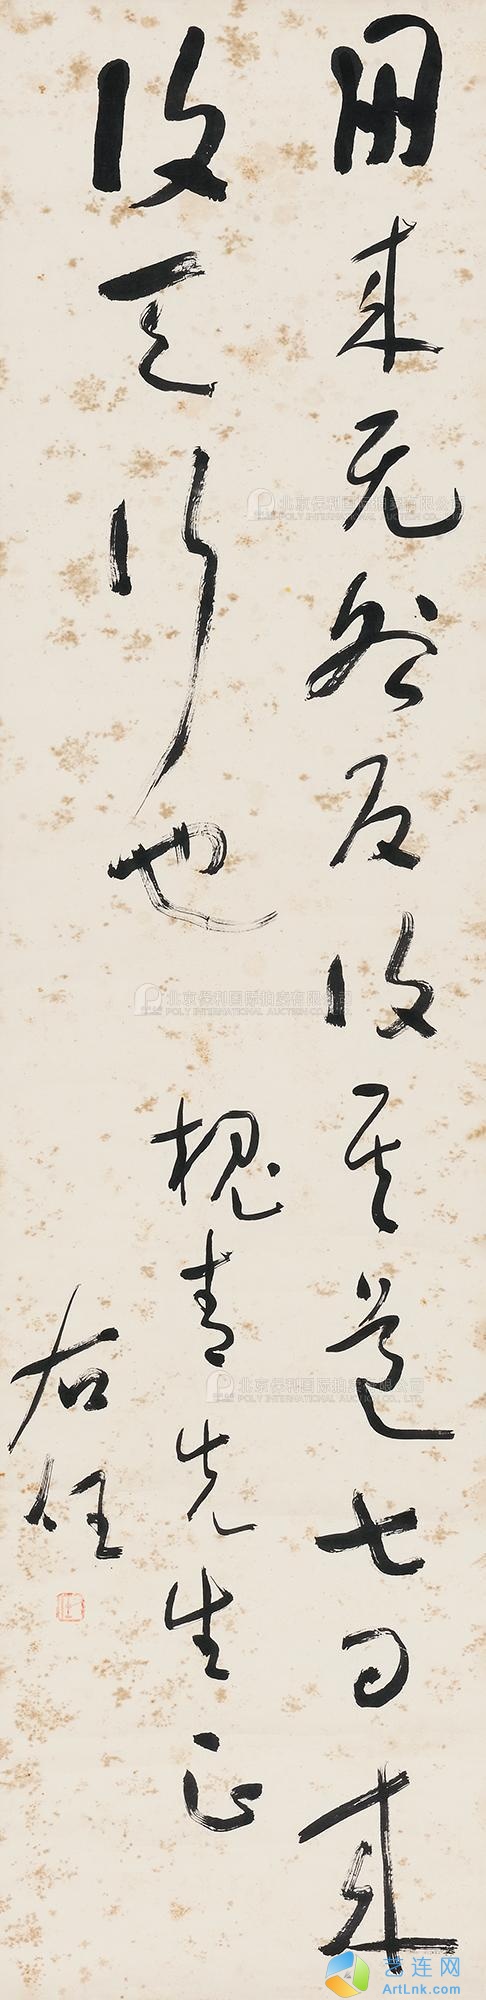 朋来无咎反復其道七日来
復天行也
槐青先生正
右任
北京保利国际拍卖有限公司
POLY INTERNATIONAL AUCTION CO., LTD.
北京保利国际拍卖有限公司
POLY INTERNATIONAL AUCTION CO., LTD.
北京保利国际拍卖有限公司
POLY INTERNATIONAL AUCTION CO., LTD.
艺连网
ArtLnk.com